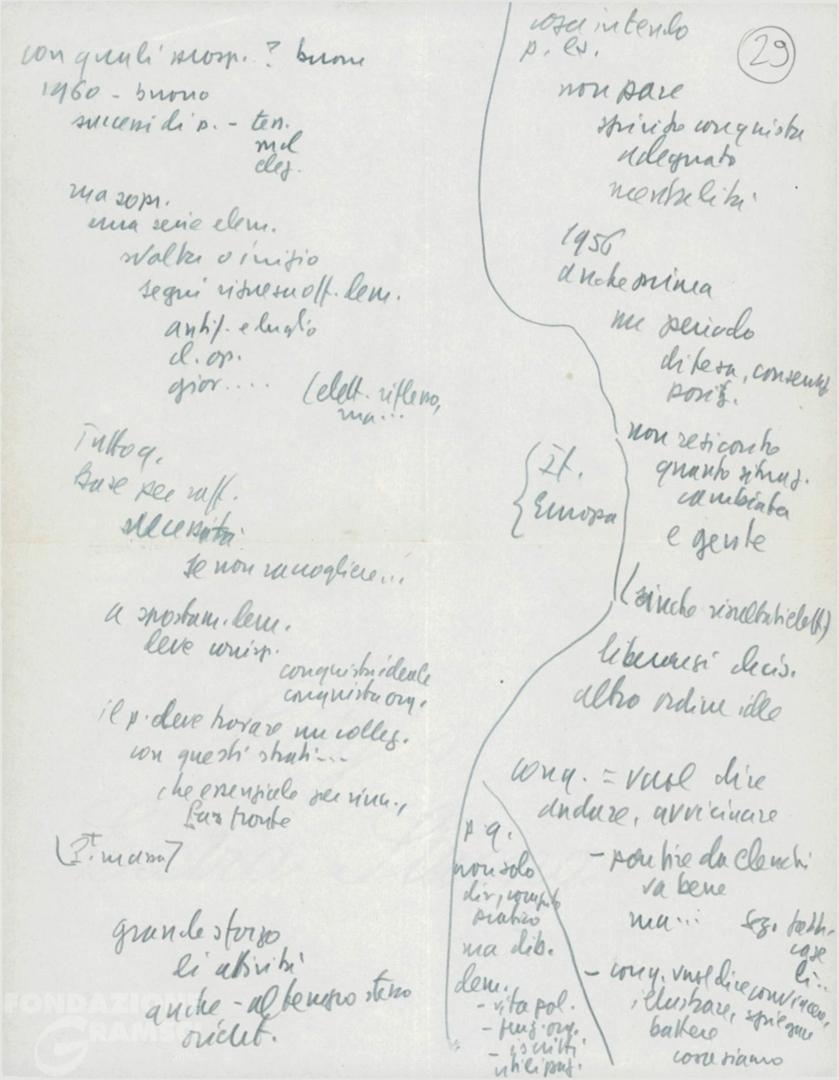 con quali prosp. ? buone
1960 - buono
successi di p. - ten.
ma sopr.
una serie elem.
svolta o inizio
segni risveglio off. dem.
antif. e luglio
d. op.
gior....
(elett. riflesso,
ma...
Tutto q.
base per raff.
necessità
se non raccogliere...
a spostam. dem.
deve corrisp.
conquista ideale
conquista org.
il p. deve trovare un colleg.
con questi strati...
che essenziale per rinn.,
far fronte
grande sforzo
di attività
anche - al tempo stesso
orient.
cosa intendo
p. es.
29
non pare
spirito conquista
adeguato
mentalità
1956
anche prima
un periodo
difesa, conserv.
posiz.
non resiconto
quanto situaz.
cambiata
e gente
It.
Europa
(anche risultati elett)
liberarsi decis.
altro ordine idee
conq. = vuol dire
andare, avvicinare
- partire da elenchi
va bene
ma...
- conq. vuol dire convincere,
illustrare, spiegare
battere
come siamo
p q.
non solo
dir, compito
pratico
ma dib.
dem.
- vita pol.
- funz. org.
- iscritti
FONDAZIONE
GRAMSCI